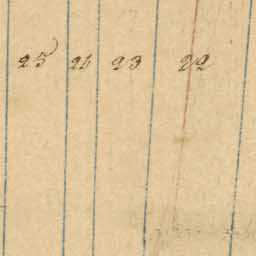 25 21 23 22